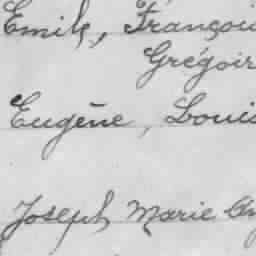 Emile, Françoi
Grégoir
Eugène, Louis
Joseph Marie